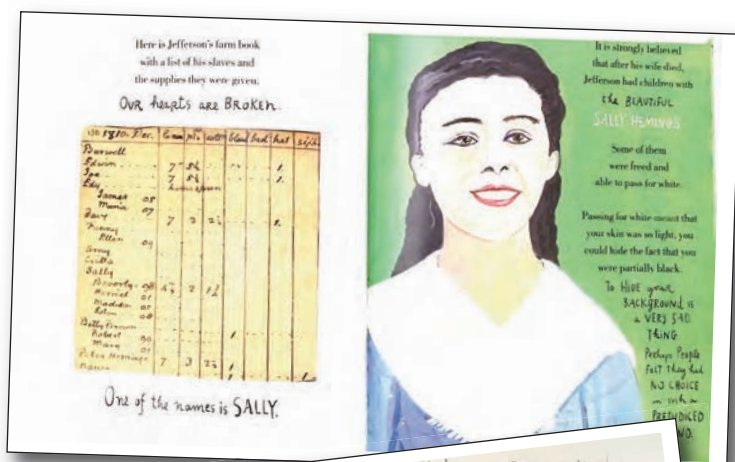 Here is Jefferson's farm book
with a list of his slaves and
the supplies they were given.
OUR hearts are BROKEN.
1810. Dec.
Burwell
Edwin 7 5½ 1.
Joe 7 5½ 1.
Edy
James 05
Maria 07
Davy 7 3 2½ 1.
Fanny
Ellen 09
Sally
Beverly 98
Harriet 01
Madison 05
Eston 08
Betty Brown
Robert
Mary 01
Peter Hemings 7 3 2½ 1
Nance
One of the names is SALLY.
It is strongly believed
that after his wife died,
Jefferson had children with
the BEAUTIFUL
SALLY HEMINGS
Some of them
were freed and
able to pass for white.
Passing for white meant that
your skin was so light, you
could hide the fact that you
were partially black.
To HIDE your
BACKGROUND is
a VERY SAD
THING
Perhaps People
FELT They had
NO CHOICE
in such a
PREJUDICED